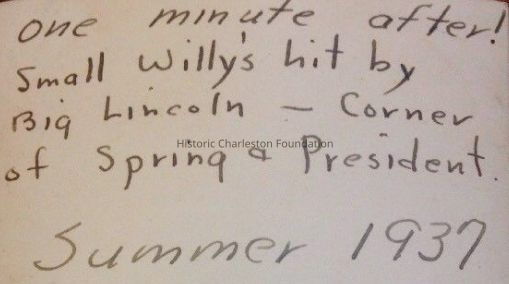 one minute after!
Small Willy's hit by
Big Lincoln — Corner
Historic Charleston Foundation
of Spring & President.
Summer 1937